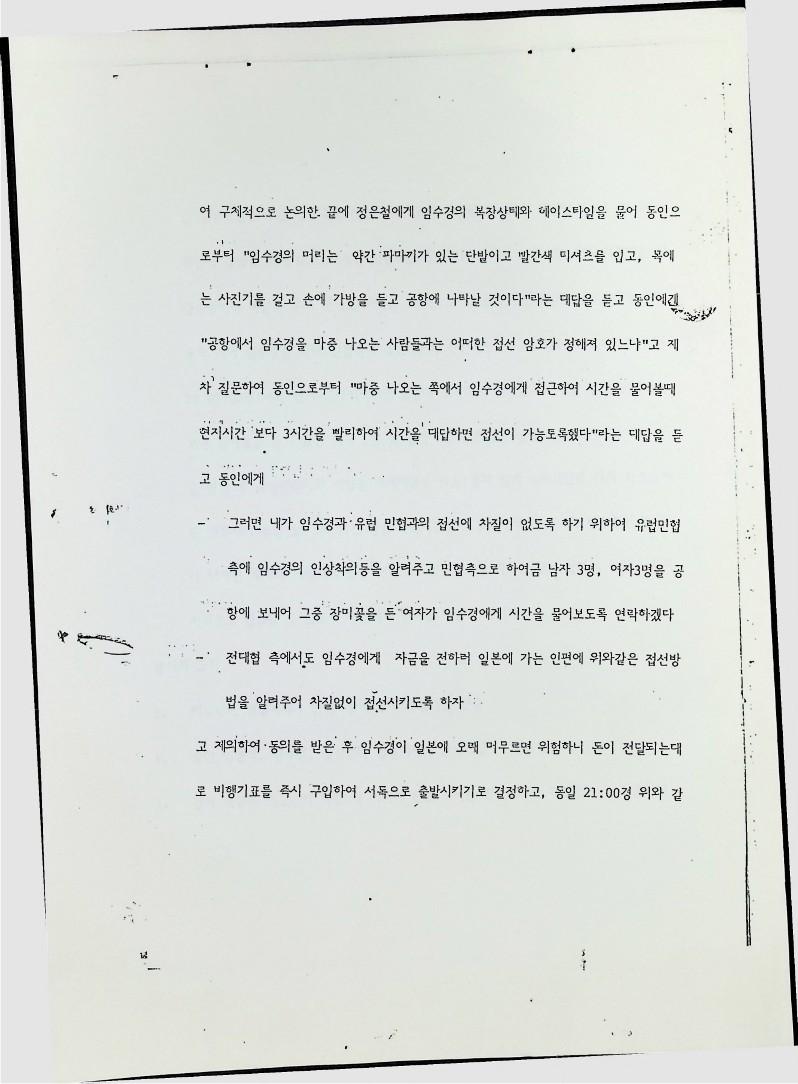 여 구체적으로 논의한 끝에 정은철에게 임수경의 복장상태와 헤이스타일을 물어 동인으
로부터 "임수경의 머리는 약간 파마끼가 있는 단발이고 빨간색 티셔츠를 입고, 목에
는 사진기를 걸고 손에 가방을 들고 공항에 나타날 것이다"라는 대답을 듣고 동인에겐
"공항에서 임수경을 마중 나오는 사람들과는 어떠한 접선 암호가 정해져 있느냐"고 재
차 질문하여 동인으로부터 "마중 나오는 쪽에서 임수경에게 접근하여 시간을 물어볼때
현지시간 보다 3시간을 빨리하여 시간을 대답하면 접선이 가능토록했다"라는 대답을 듣
고 동인에게
- 그러면 내가 임수경과 유럽 민협과의 접선에 차질이 없도록 하기 위하여 유럽민협
측에 임수경의 인상착의등을 알려주고 민협측으로 하여금 남자 3명, 여자3명을 공
항에 보내어 그중 장미꽃을 든 여자가 임수경에게 시간을 물어보도록 연락하겠다
- 전대협 측에서도 임수경에게 자금을 전하러 일본에 가는 인편에 위와같은 접선방
법을 알려주어 차질없이 접선시키도록 하자
고 제의하여 동의를 받은 후 임수경이 일본에 오래 머무르면 위험하니 돈이 전달되는대
로 비행기표를 즉시 구입하여 서독으로 출발시키기로 결정하고, 동일 21:00경 위와 같